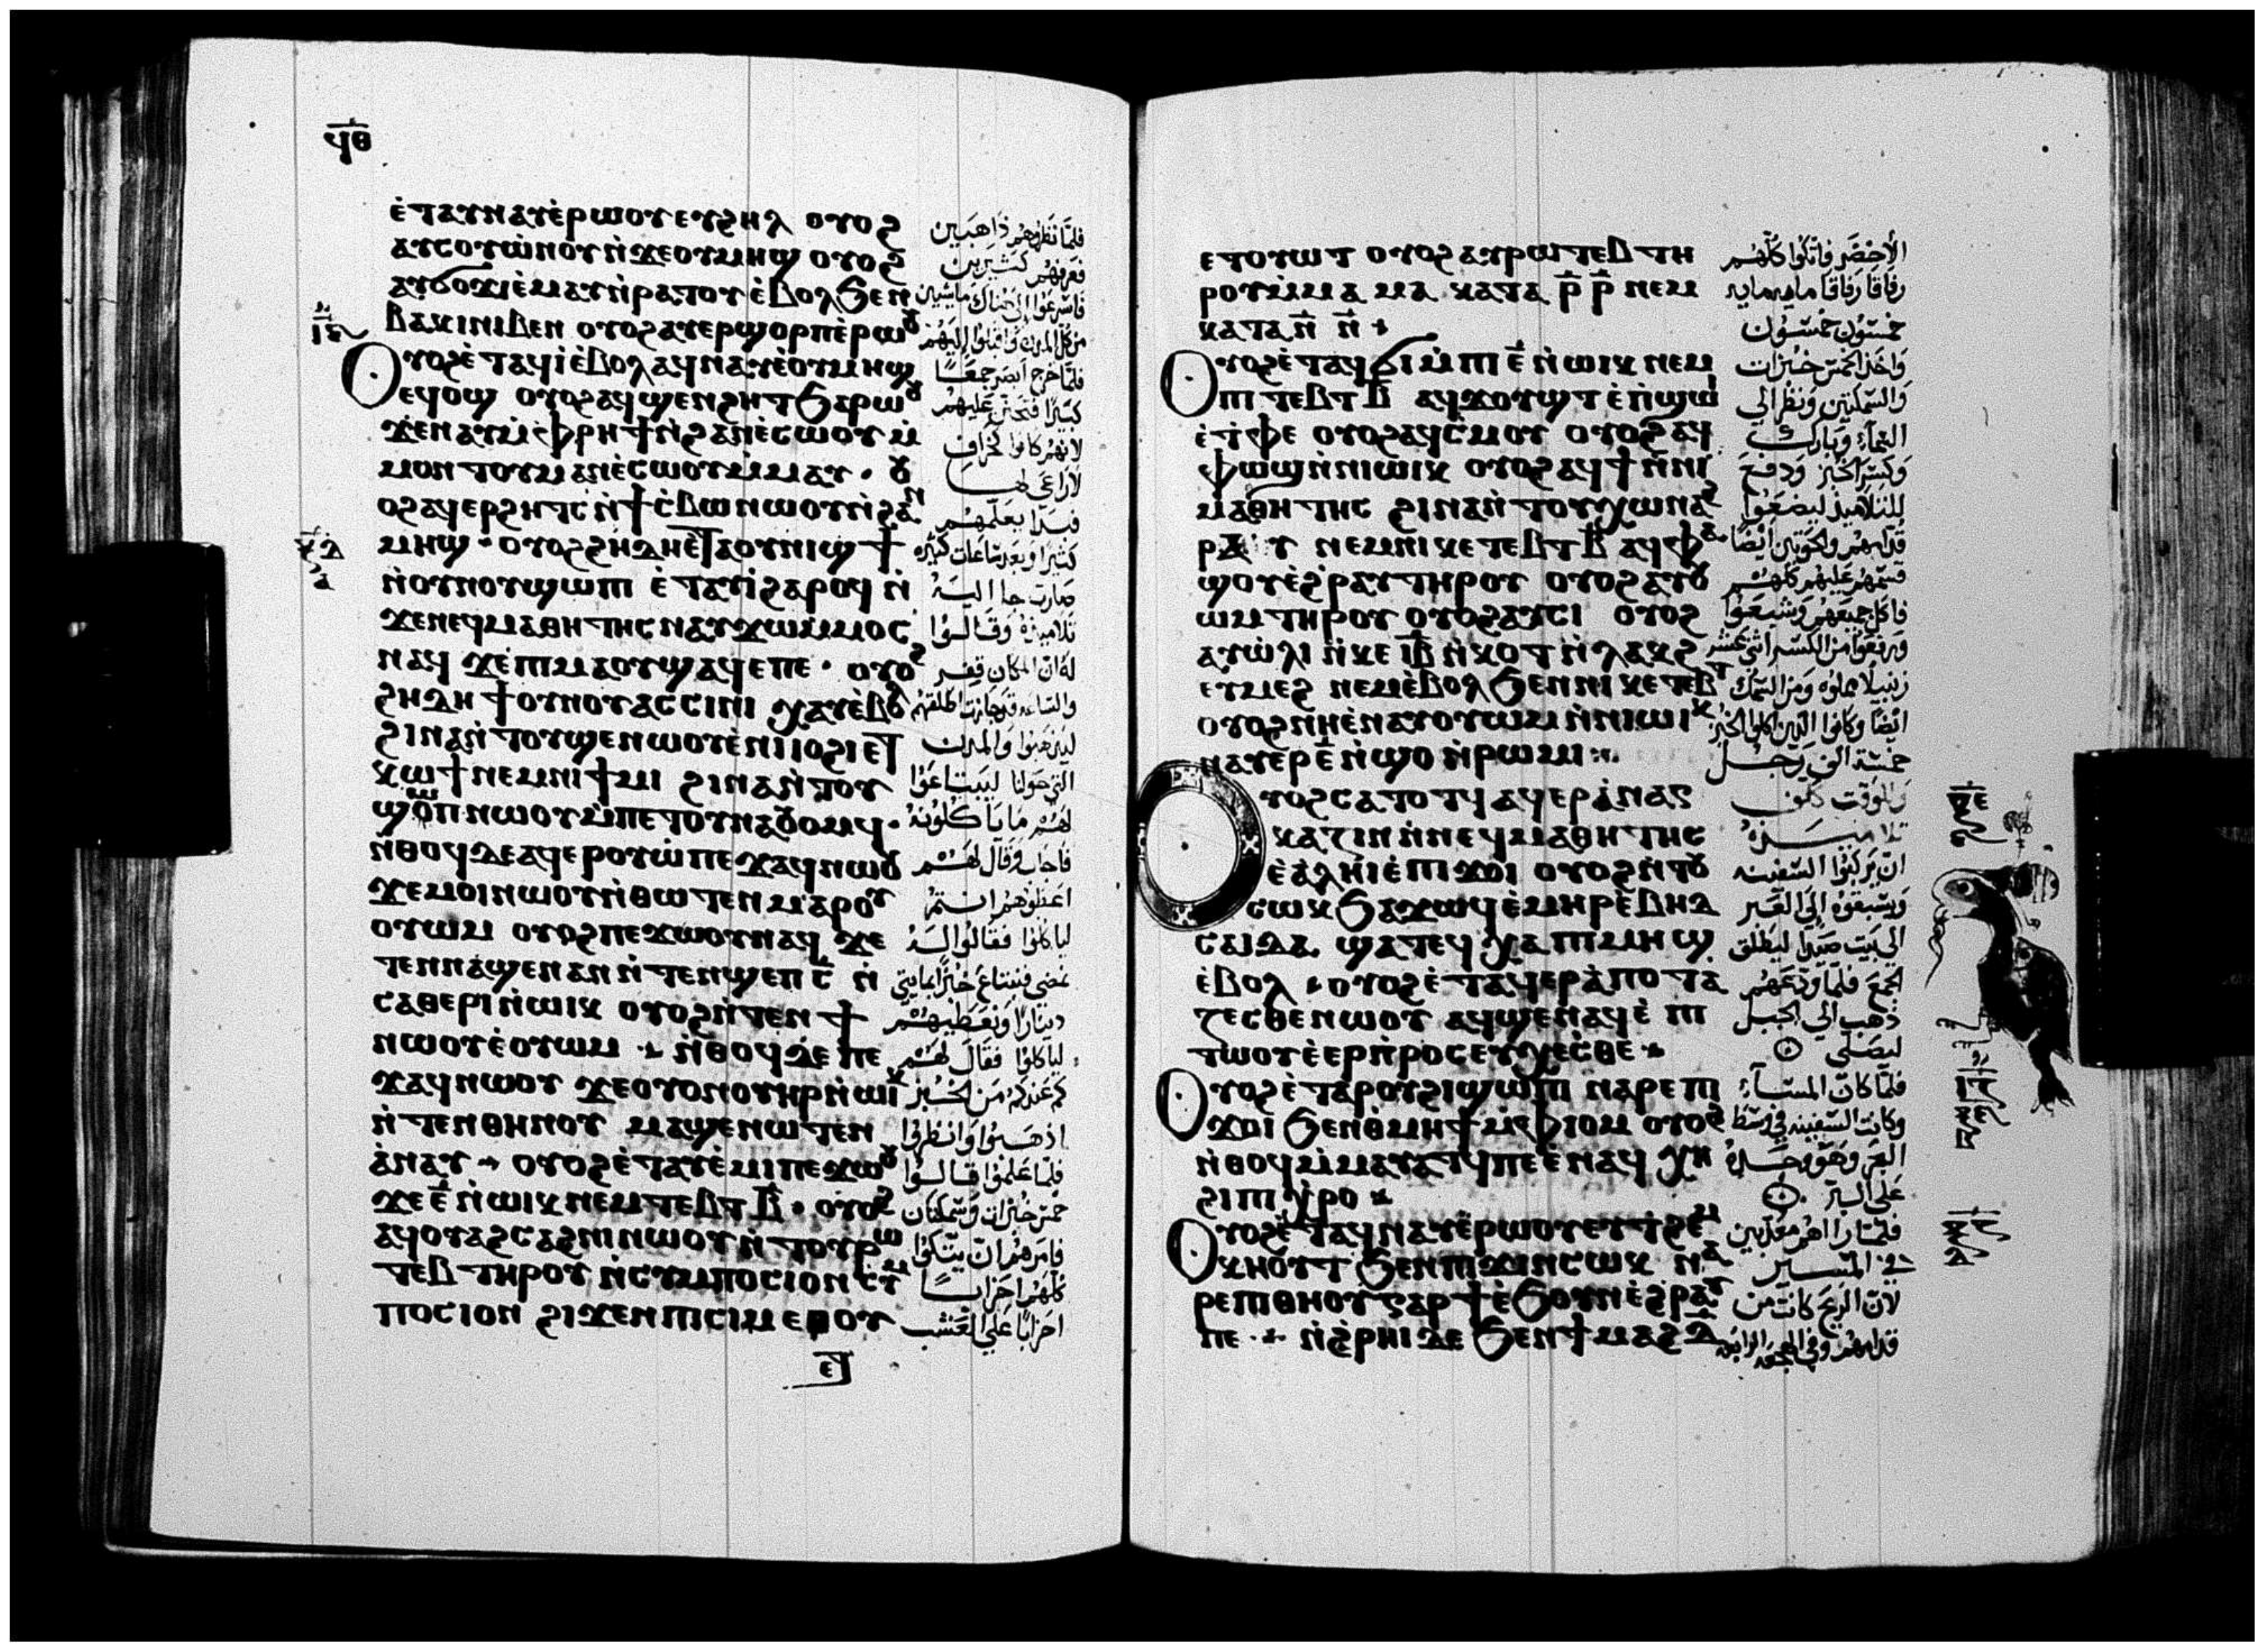 ϥⲑ
ⲉ̇ⲧⲁⲩⲛⲁⲩⲉ̇ⲣⲱⲟⲩ ⲉⲩϩⲏⲗ ⲟⲩⲟϩ
ⲁⲩⲥⲟⲩⲱ̇ⲛⲟⲩ ⲛ̇ϫⲉⲟⲩⲙⲏϣ ⲟⲩⲟϩ
ⲁⲩϭⲟϫⲓ ⲉ̇ⲙⲁⲩ ⲛ̇ⲣⲁⲧⲟⲩ ⲉ̇ⲃⲟⲗ ϧⲉⲛ
ⲃⲁⲕⲓ ⲛⲓⲃⲉⲛ ⲟⲩⲟϩ ⲁⲩⲉⲣϣⲟⲣⲡ ⲉ̇ⲣⲱⲟⲩ
Ⲟⲩⲟϩ ⲉ̇ⲧⲁϥⲓ̇ ⲉ̇ⲃⲟⲗ ⲁϥⲛⲁⲩ ⲉ̇ⲟⲩⲙⲏϣ
ⲉϥⲟϣ ⲟⲩⲟϩ ⲁϥϣⲉⲛϩⲏⲧ ϧⲁⲣⲱⲟⲩ
ϫⲉ ⲛⲁⲩⲙ̇ⲫⲣⲏϯ ⲛ̇ϩⲁⲛⲉ̇ⲥⲱⲟⲩ ⲙ̇
ⲙⲟⲛⲧⲟⲩ ⲙⲁⲛⲉ̇ⲥⲱⲟⲩ ⲙ̇ⲙⲁⲩ · ⲟⲩ
ⲟϩ ⲁϥⲉⲣϩⲏⲧⲥ ⲛ̇ϯⲥ̇ⲃⲱ ⲛⲱⲟⲩ ⲛ̇ϩⲁⲛ
ⲙⲏϣ · ⲟⲩⲟϩ ϩⲏⲇⲏ ⲉ̇ⲧⲁⲟⲩⲛⲓϣϯ
ⲛ̇ⲟⲩⲛⲟⲩ ϣⲱⲡⲓ ⲉ̇ⲧⲁⲩⲓ̇ ϩⲁⲣⲟϥ ⲛ̇
ϫⲉⲛⲉϥⲙⲁⲑⲏⲧⲏⲥ ⲛⲁⲩϫⲱ ⲙ̇ⲙⲟⲥ
ⲛⲁϥ ϫⲉ ⲡⲓⲙⲁ ⲟⲩϣⲁϥⲉ ⲡⲉ · ⲟⲩⲟϩ
ϩⲏⲇⲏ ϯⲟⲩⲛⲟⲩ ⲁⲥⲥⲓⲛⲓ ⲭⲁⲩ ⲉ̇ⲃⲟⲗ
ϩⲓⲛⲁ ⲛ̇ⲧⲟⲩϣⲉⲛⲱⲟⲩ ⲉ̇ⲛⲓⲓⲟϩⲓ ⲉⲧ
ⲕⲱϯ ⲛⲉⲙ ⲛⲓϯⲙⲓ ϩⲓⲛⲁ ⲛ̇ⲧⲟⲩ
ϣⲱⲡ ⲛⲱⲟⲩ ⲙ̇ⲡⲉⲧⲟⲩⲛⲁⲟⲩⲟⲙϥ ·
ⲛ̇ⲑⲟϥ ⲇⲉ ⲁϥⲉⲣⲟⲩⲱ̇ ⲡⲉϫⲁϥ ⲛⲱⲟⲩ
ϫⲉ ⲙⲟⲓ ⲛⲱⲟⲩ ⲛ̇ⲑⲱⲧⲉⲛ ⲙⲁⲣⲟⲩ
ⲟⲩⲱⲙ ⲟⲩⲟϩ ⲡⲉϫⲱⲟⲩ ⲛⲁϥ ϫⲉ
ⲧⲉⲛⲛⲁϣⲉⲛⲁⲛ ⲛ̇ⲧⲉⲛϣⲉⲡ ⲥ̅ ⲛ̇
ⲥⲁⲑⲉⲣⲓ ⲛ̇ⲱⲓⲕ ⲟⲩⲟϩ ⲛ̇ⲧⲉⲛϯ
ⲛⲱⲟⲩ ⲉ̇ⲟⲩⲱⲙ · ⲛ̇ⲑⲟϥ ⲇⲉ ⲡⲉ
ϫⲁϥ ⲛⲱⲟⲩ ϫⲉ ⲟⲩⲟⲛ ⲟⲩⲏⲣ ⲛ̇ⲱⲓⲕ
ⲛ̇ⲧⲉⲛⲑⲏⲛⲟⲩ ⲙⲁϣⲉⲛⲱⲧⲉⲛ
ⲁ̇ⲛⲁⲩ · ⲟⲩⲟϩ ⲉ̇ⲧⲁⲩⲉ̇ⲙⲓ ⲡⲉϫⲱⲟⲩ
ϫⲉ ⲉ̅ ⲛ̇ⲱⲓⲕ ⲛⲉⲙ ⲧⲉⲃⲧ ⲃ̅ · ⲟⲩⲟϩ
ⲁϥⲟⲩⲁϩⲥⲁϩⲛⲓ ⲛⲱⲟⲩ ⲛ̇ⲧⲟⲩⲣⲱ
ⲧⲉⲃ ⲧⲏⲣⲟⲩ ⲛ̇ⲥⲩⲙⲡⲟⲥⲓⲟⲛ ⲥⲩⲙ
ⲡⲟⲥⲓⲟⲛ ϩⲓϫⲉⲛ ⲡⲓⲥⲓⲙ ⲉⲑⲟⲩ
ⲉⲧ
فلما نظروهم ذاهبين
فعرفهم كثيرين
فاسرعوا الى هناك ماشيين
من كل المدن واقبلوا اليهم
فلما خرج ابصر جمعًا
كبيرًا فتحنن عليهم
لانهم كانوا كخراف
لا راعي لها
فبدا يعلمهم
كثيرا وبعد ساعات كثيرة
صارت جا اليه
تلاميذه وقالوا
له ان المكان قفر
والساعه قد جازت اطلقهم
ليذهبوا والمدن
التي حولنا ليبتاعوا
لهم ما ياكلونه
فاجاب وقال لهم
اعطوهم انتم
لياكلوا فقالوا له
نمضي فنبتاع خبزًا بمايتي
دينارًا ونعطيهم
لياكلوا فقال لهم
كم عندكم من الخبز
اذهبوا وانظروا
فلما علموا قالوا
خمس خبزات وسمكتان
فامرهم ان يتكوا
كلهم احزابًا
احزابًا علي العشب
ⲉⲧⲟⲩⲱⲧ ⲟⲩⲟϩ ⲁⲩⲣⲱⲧⲉⲃ ⲧⲏ
ⲣⲟⲩ ⲙ̇ⲙⲁ ⲙⲁ ⲕⲁⲧⲁ ⲣ̅ ⲣ̅ ⲛⲉⲙ
ⲕⲁⲧⲁ ⲛ̅ ⲛ̅
Ⲟⲩⲟϩ ⲉ̇ⲧⲁϥϭⲓ ⲙ̇ⲡⲓ ⲉ̅ ⲛ̇ⲱⲓⲕ ⲛⲉⲙ
ⲡⲓ ⲧⲉⲃⲧ ⲃ̅ ⲁϥϫⲟⲩϣⲧ ⲉ̇ⲡ̇ϣⲱⲓ
ⲉ̇ⲧ̇ⲫⲉ ⲟⲩⲟϩ ⲁϥⲥ̇ⲙⲟⲩ ⲟⲩⲟϩ ⲁϥ
ⲫⲱϣ ⲛ̇ⲛⲓⲱⲓⲕ ⲟⲩⲟϩ ⲁϥϯ ⲛ̇ⲛⲓ
ⲙⲁⲑⲏⲧⲏⲥ ϩⲓⲛⲁ ⲛ̇ⲧⲟⲩⲭⲱ ⲛⲁϩ
ⲣⲁⲩ ⲛⲉⲙ ⲡⲓⲕⲉⲧⲉⲃⲧ ⲃ̅ ⲁϥⲫⲁ
ϣⲟⲩ ⲉ̇ϩ̇ⲣⲁⲩ ⲧⲏⲣⲟⲩ ⲟⲩⲟϩ ⲁⲩⲟⲩ
ⲱⲙ ⲧⲏⲣⲟⲩ ⲟⲩⲟϩ ⲁⲩⲥⲓ ⲟⲩⲟϩ
ⲁⲩⲱ̇ⲗⲓ ⲛ̇ⲕⲉ ⲓ̅ⲃ̅ ⲛ̇ⲕⲟⲧ ⲛ̇ⲗⲁⲕϩ
ⲉⲩⲙⲉϩ ⲛⲉⲙ ⲉ̇ⲃⲟⲗ ϧⲉⲛ ⲛⲓⲕⲉⲧⲉⲃⲧ
ⲟⲩⲟϩ ⲛⲏ ⲉ̇ⲛⲁⲩⲟⲩⲱⲙ ⲛ̇ⲛⲓⲱⲓⲕ
ⲛⲁⲩⲉⲣ ⲉ̅ ⲛ̇ϣⲟ ⲛ̇ⲣⲱⲙⲓ
Ⲟⲩⲟϩ ⲥⲁⲧⲟⲧϥ ⲁϥⲉⲣⲁ̇ⲛⲁⲅ
ⲕⲁⲍⲓⲛ ⲛ̇ⲛⲉϥⲙⲁⲑⲏⲧⲏⲥ
ⲉ̇ⲁ̇ⲗⲏⲓ ⲉ̇ⲡⲓϫⲟⲓ ⲟⲩⲟϩ ⲛ̇ⲧⲟⲩ
ⲥⲱⲕ ϧⲁϫⲱϥ ⲉ̇ⲙⲏⲣ ⲉ̇ⲃⲏⲇ
ⲥⲁⲓⲇⲁ ϣⲁⲧⲉϥ ⲭⲁ ⲡⲓⲙⲏϣ
ⲉ̇ⲃⲟⲗ ⲟⲩⲟϩ ⲉ̇ⲧⲁϥⲉⲣⲁ̇ⲡⲟⲧⲁ
ⲍⲉⲥⲑⲉ ⲛⲱⲟⲩ ⲁϥϣⲉⲛⲁϥ ⲉ̇ ⲡⲓ
ⲧⲱⲟⲩ ⲉ̇ⲉⲣⲡ̇ⲣⲟⲥⲉⲩⲭⲉⲥⲑⲉ
Ⲟⲩⲟϩ ⲉ̇ⲧⲁⲣⲟⲩϩⲓ ϣⲱⲡⲓ ⲛⲁⲣⲉ ⲡⲓ
ϫⲟⲓ ϧⲉⲛ ⲑ̇ⲙⲏϯ ⲙ̇ⲫⲓⲟⲙ ⲟⲩⲟϩ
ⲛ̇ⲑⲟϥ ⲙ̇ⲙⲁⲩⲁⲧϥ ⲡⲉ ⲉ̇ⲛⲁϥ ⲭⲏ
ϩⲓ ⲡⲓⲭ̇ⲣⲟ
Ⲟⲩⲟϩ ⲉ̇ⲧⲁϥⲛⲁⲩ ⲉ̇ⲣⲱⲟⲩ ⲉⲩⲧϩⲉⲙ
ⲕⲏⲟⲩⲧ ϧⲉⲛ ⲡϫⲓⲛⲥⲱⲕ ⲛⲁ
ⲣⲉ ⲡⲓⲑⲏⲟⲩ ⲅⲁⲣ ϯ ⲉ̇ϧⲟⲩⲛ ⲉ̇ϩ̇ⲣⲁⲩ
ⲡⲉ · ⲛ̇ϩ̇ⲣⲏⲓ ⲇⲉ ϧⲉⲛ ϯⲙⲁϩ ⲇ̅
الأخضر فاتكوا كلهم
رفاقا رفاقا مايه مايه
خمسون خمسون
واخذ الخمس خبزات
والسمكتين ونظر الي
السماء وبارك
وكسر الخبز ودفع
للتلاميذ ليضعوا
قدامهم والحوتين ايضا
قسمهم عليهم كلهم
فاكل جميعهم وشبعوا
ورفعوا من الكسر اثني عشر
زنبيلا مملوه ومن السمك
ايضا وكانوا الذين اكلوا الخبز
خمسة الف رجل
وللوقت كلف
تلاميذه
ان يركبوا السفينه
ويسبقوه الي العبر
الي بيت صيدا ليطلق
الجمع فلما ودعهم
ذهب الي الجبل
ليصلي
فلما كان المساء
وكانت السفينه في وسط
البحر وهو وحده
علي البر
فلما راهم معذبين
في المسير
لان الريح كانت من
قدامهم وفي الهجعه الرابعه